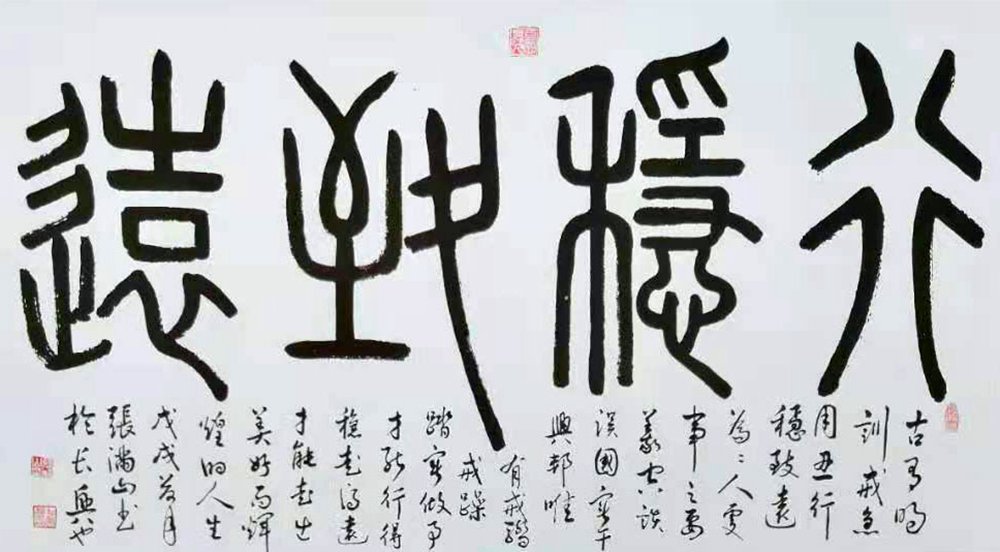 行穩致遠
古有明
訓戒急
用忍行
穩致遠
為人處
事之要
義空談
误國实干
興邦唯
有戒骄
戒躁
踏实做事
才能行得
稳走得遠
才能走出
美好而輝
煌的人生
戊戌月
張满山书
於长